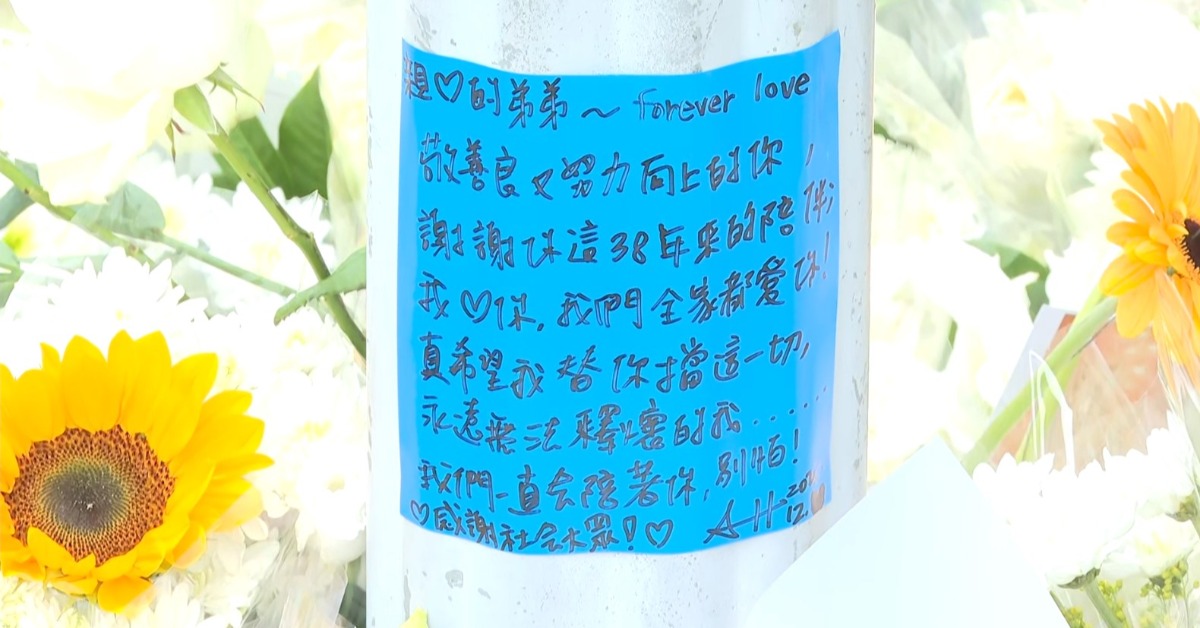 親♡的弟弟～forever love
敬善良又努力向上的你，
謝謝你這38年來的陪伴，
我♡你，我們全家都愛你！
真希望我替你擋這一切，
永遠無法釋懷的我......
我們一直会陪著你，別怕！
♡感謝社会大眾！♡ AH 12.